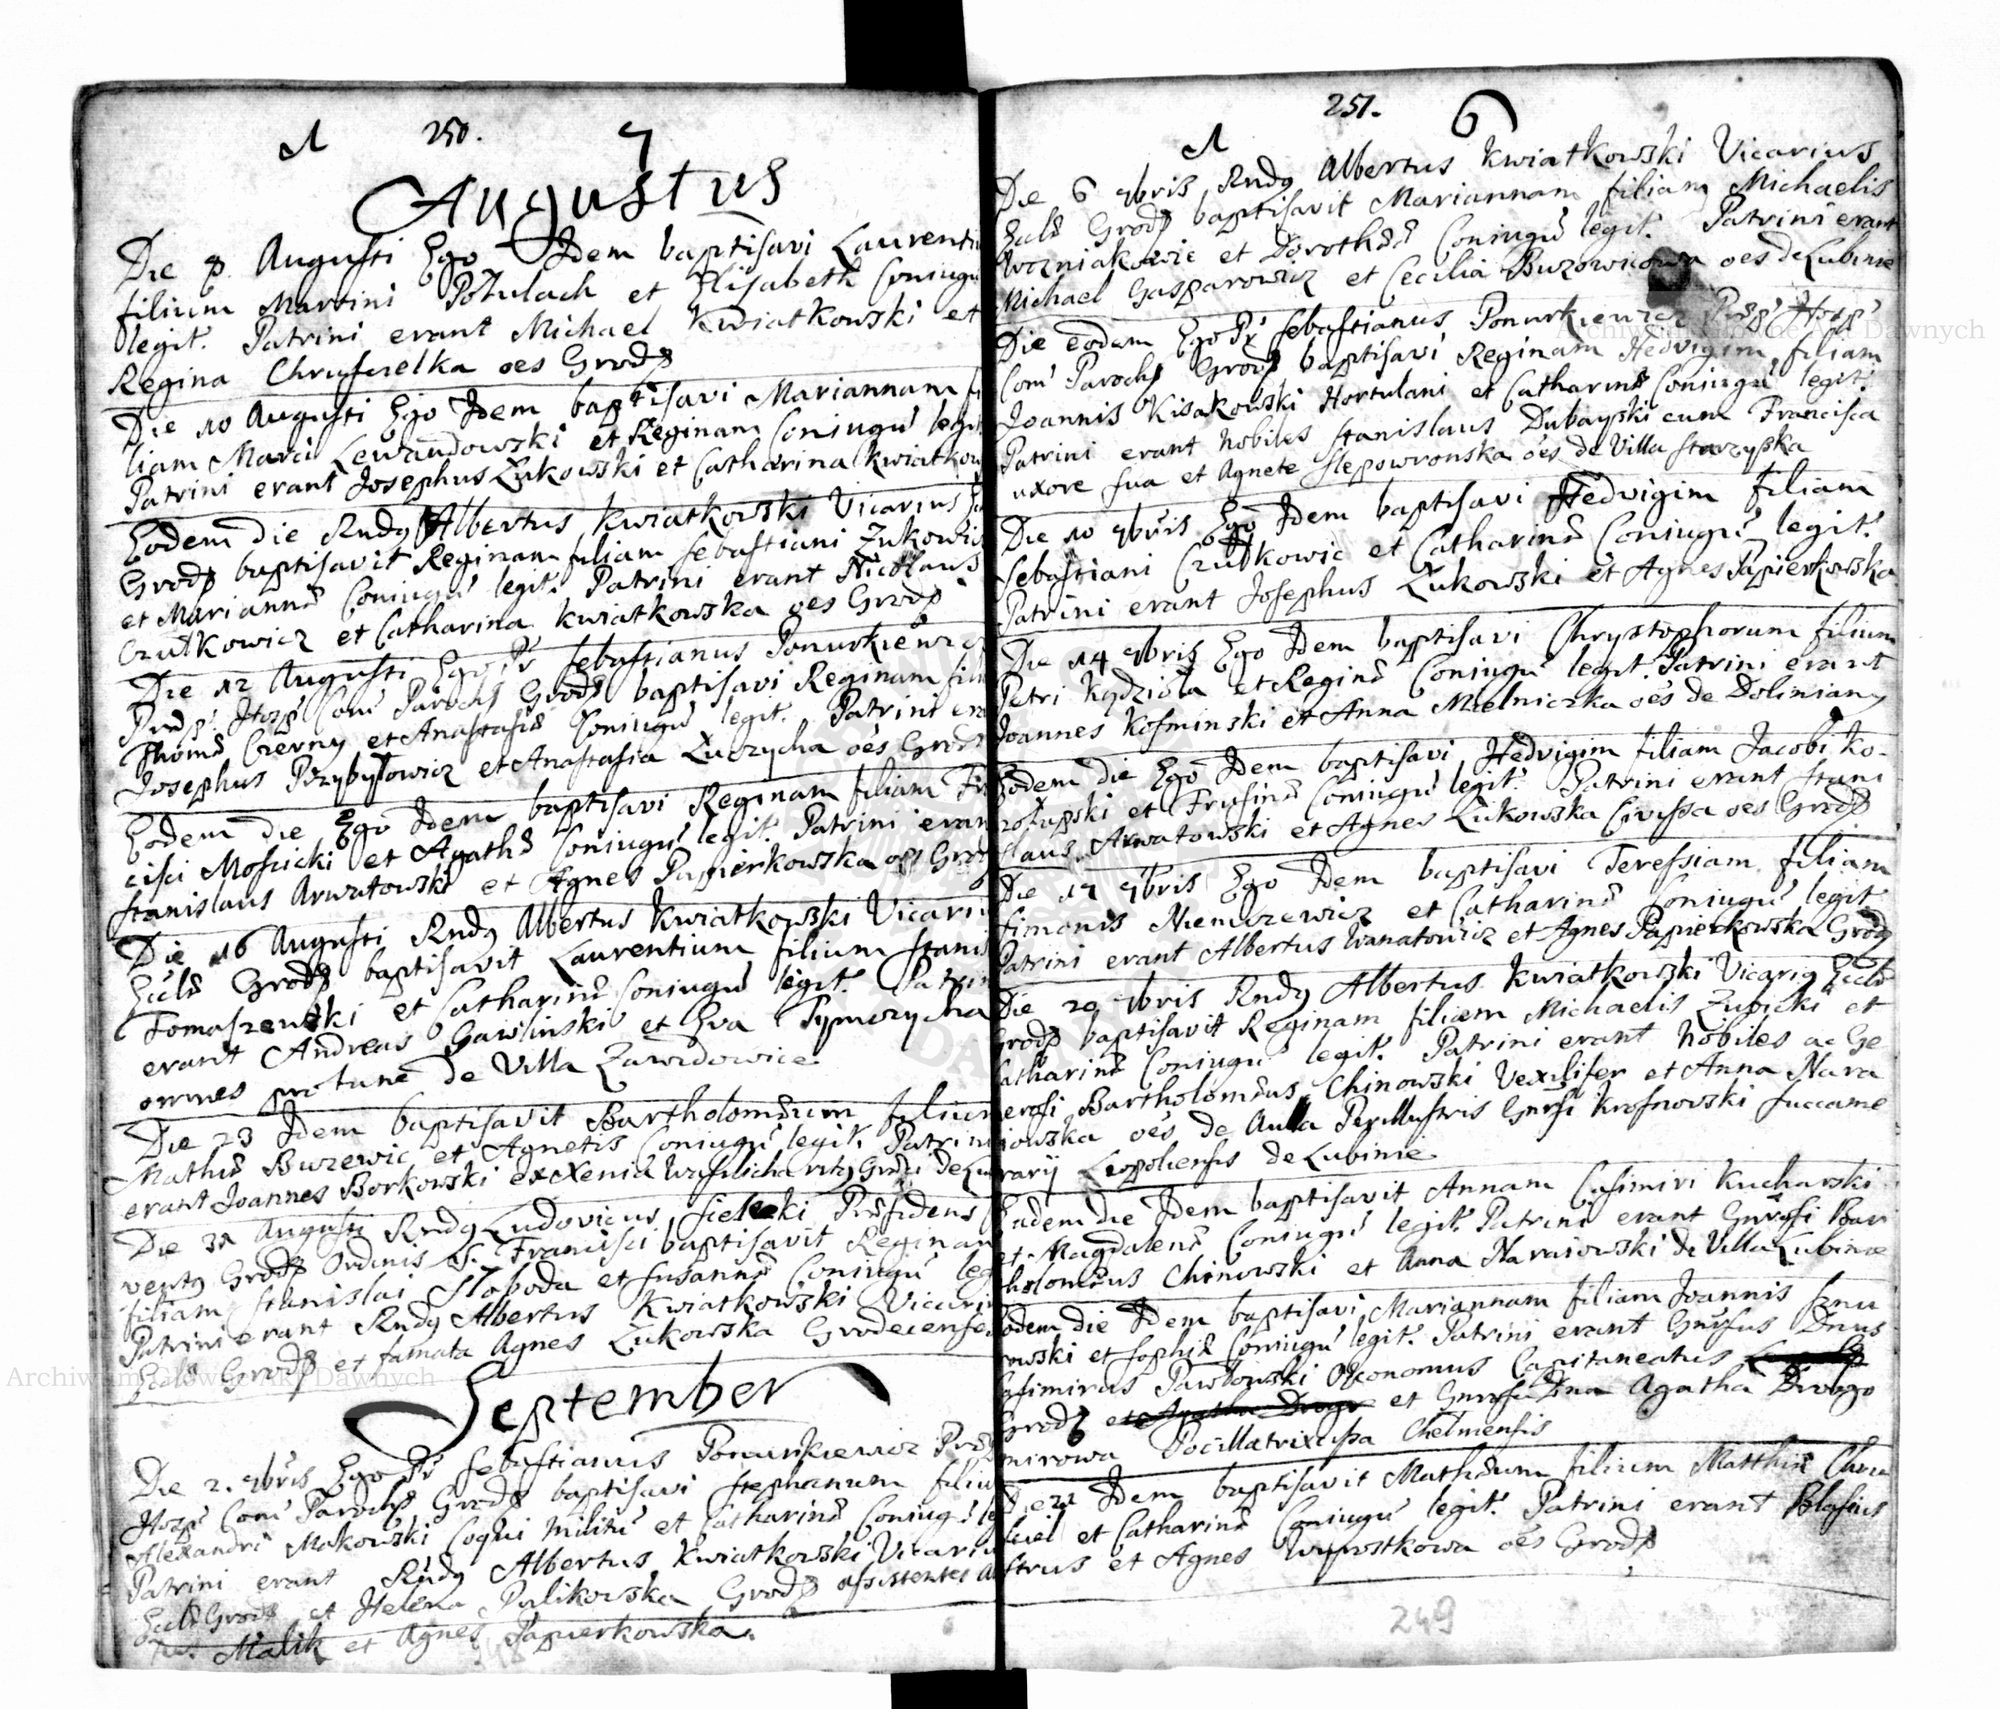 A 250. 7
Augustus
Die 8 Augusti Ego Idem baptisavi Laurenti
filium Martini Potulach et Elisabeth Coniugu
legit. Patrini erant Michael Kwiatkowski et
Regina Chrusuelka oes Grods
Die 10 Augusti Ego Idem baptisavi Mariannam fi
liam Marci Lewandowski et Reginam Coniugu legit
Patrini erant Josephus Łukowski et Catharina Kwiatkow
Eodem die Rndg Albertus Kwiatkowski Vicarius
Grods baptisavit Reginam filiam Sebastiani Zukowic
et Mariannæ Coniugu legit. Patrini erant Nicolaus
Czutkowicz et Catharina Kwiatkowska oes Grods
Die 12 Augusti Ego Sebastianus Ponurkiewicz
Hosp Com Paroch Grods baptisavi Reginam fili
Thomæ Czerny et Anastasiæ Coniugu legit. Patrini era
Josephus Przybyłowicz et Anastasia Łuczycha oes Grods
Eodem die Ego Idem baptisavi Reginam filiam Fran
cisci Moscicki et Agathæ Coniugu legit. Patrini eran
Stanislaus Arwatowski et Agnes Papierkowska oes Grod
Die 16 Augusti Rndg Albertus Kwiatkowski Vicariu
Eccls Grods baptisavit Laurentium filium Stanis
Tomaszewski et Catharinæ Coniugu legit. Patrin
erant Andreas Gawlinski et Eva Tymczycha
omnes pro tunc de Villa Zawidowice
Die 23 Idem baptisavit Bartholomæum filium
Mathiæ Buzewic et Agnetis Coniugu legit. Patrini
erant Joannes Borkowski et Xenia Wasilicha
Die 31 Augusti Rndg Ludovicus Sielecki Præsidens
ventg Grods Ordinis S. Francisci baptisavit Reginam
filiam Stanislai Słoboda et Susannæ Coniugu leg
Patrini erant Rndg Albertus Kwiatkowski Vicariu
Eccls Grods et famata Agnes Łukowska Grodecense
September
Die 2. 7bris Ego Sebastianus Ponurkiewicz
Hosp Com Paroch Grods baptisavi Stephanum filiu
Alexandri Makowski Coqui Militu et Catharinæ Coniug le
Patrini erant Rndg Albertus Kwiatkowski Vicariu
Eccls Grods et Helena Pulikowska Grods assistentes
Malik et Agnes Papierkowska.
A 251. 6
Die 6 7bris Rndg Albertus Kwiatkowski Vicarius
Eccls Grods baptisavit Mariannam filiam Michaelis
Wozniakowic et Dorotheæ Coniugu legit. Patrini erant
Michael Gasparowicz et Cecilia Buzowicowa oes de Lubinie
Die eodem Ego Sebastianus Ponurkiewicz Hosp
Com Paroch Grods baptisavi Reginam Hedvigim filiam
Joannis Kisakowski Hortulani et Catharinæ Coniugu legit.
Patrini erant Nobiles Stanislaus Dubayski cum Francisca
uxore sua et Agnete Slepowronska oes de Villa Starzyska
Die 10 7bris Ego Idem baptisavi Hedvigim filiam
Sebastiani Czutkowic et Catharinæ Coniugu legit.
Patrini erant Josephus Łukowski et Agnes Papierkowska
Die 14 7bris Ego Idem baptisavi Chrystophorum filium
Petri Kędziola et Reginæ Coniugu legit. Patrini erant
Joannes Kosminski et Anna Mielniczka oes de Doliniany
Eodem die Ego Idem baptisavi Hedvigim filiam Jacobi Ko-
rołupski et Frusinæ Coniugu legit. Patrini erant Stani
slaus Arwatowski et Agnes Łukowska Civissa oes Grods
Die 17 7bris Ego Idem baptisavi Teressiam filiam
Simonis Niemszewicz et Catharinæ Coniugu legit
Patrini erant Albertus Iwanatowicz et Agnes Papierkowska Grods
Die 20 7bris Rndg Albertus Kwiatkowski Vicarig Eccls
Grods baptisavit Reginam filiam Michaelis Zubicki et
Catharinæ Coniugu legit. Patrini erant Nobiles ac Ge
nerosi Bartholomæus Chinowski Vexilifer et Anna Nara
iowska oes de Aulla Perillustris Gnrsi Krosnovski Succame
rarij Leopoliensis de Lubinie
Eadem die Idem baptisavit Annam Casimiri Kucharski
et Magdalenæ Coniugu legit. Patrini erant Gnrosi Bar
tholomæus Chinowski et Anna Naraiowski de Villa Lubinie
Eodem die Idem baptisavi Mariannam filiam Joannis Sznu
rowski et Sophiæ Coniugu legit. Patrini erant Gnrsus Dnus
Casimirus Pawłowski Oeconomus Capitaneatus
Grods et Agatha Drogo et Gnrosa Dna Agatha Drogo
mirowa Pocillatrixissa Chelmensis
Die 21 Idem baptisavit Mathæum filium Matthiæ Chru
sciel et Catharinæ Coniugu legit. Patrini erant Blasius
Strus et Agnes Wyrostkowa oes Grods
249
Archiwum Główne Akt Dawnych
Archiwum Główne Akt Dawnych